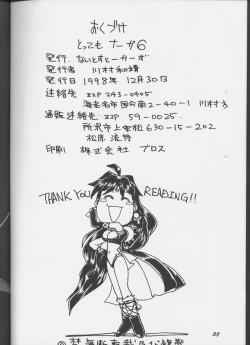 おくづけ
とっても ナーガ6
発行. ないとすとーかーず
発行者 川村和靖
発行日 1998年 12月30日
連絡先 〒 243-0405
海老名市国分南2-40-1 川村方
通販連絡先 〒 359-0025
所沢市上安松630-15-202
松原
印刷 株式会社 プロス
THANK YOU READING!!